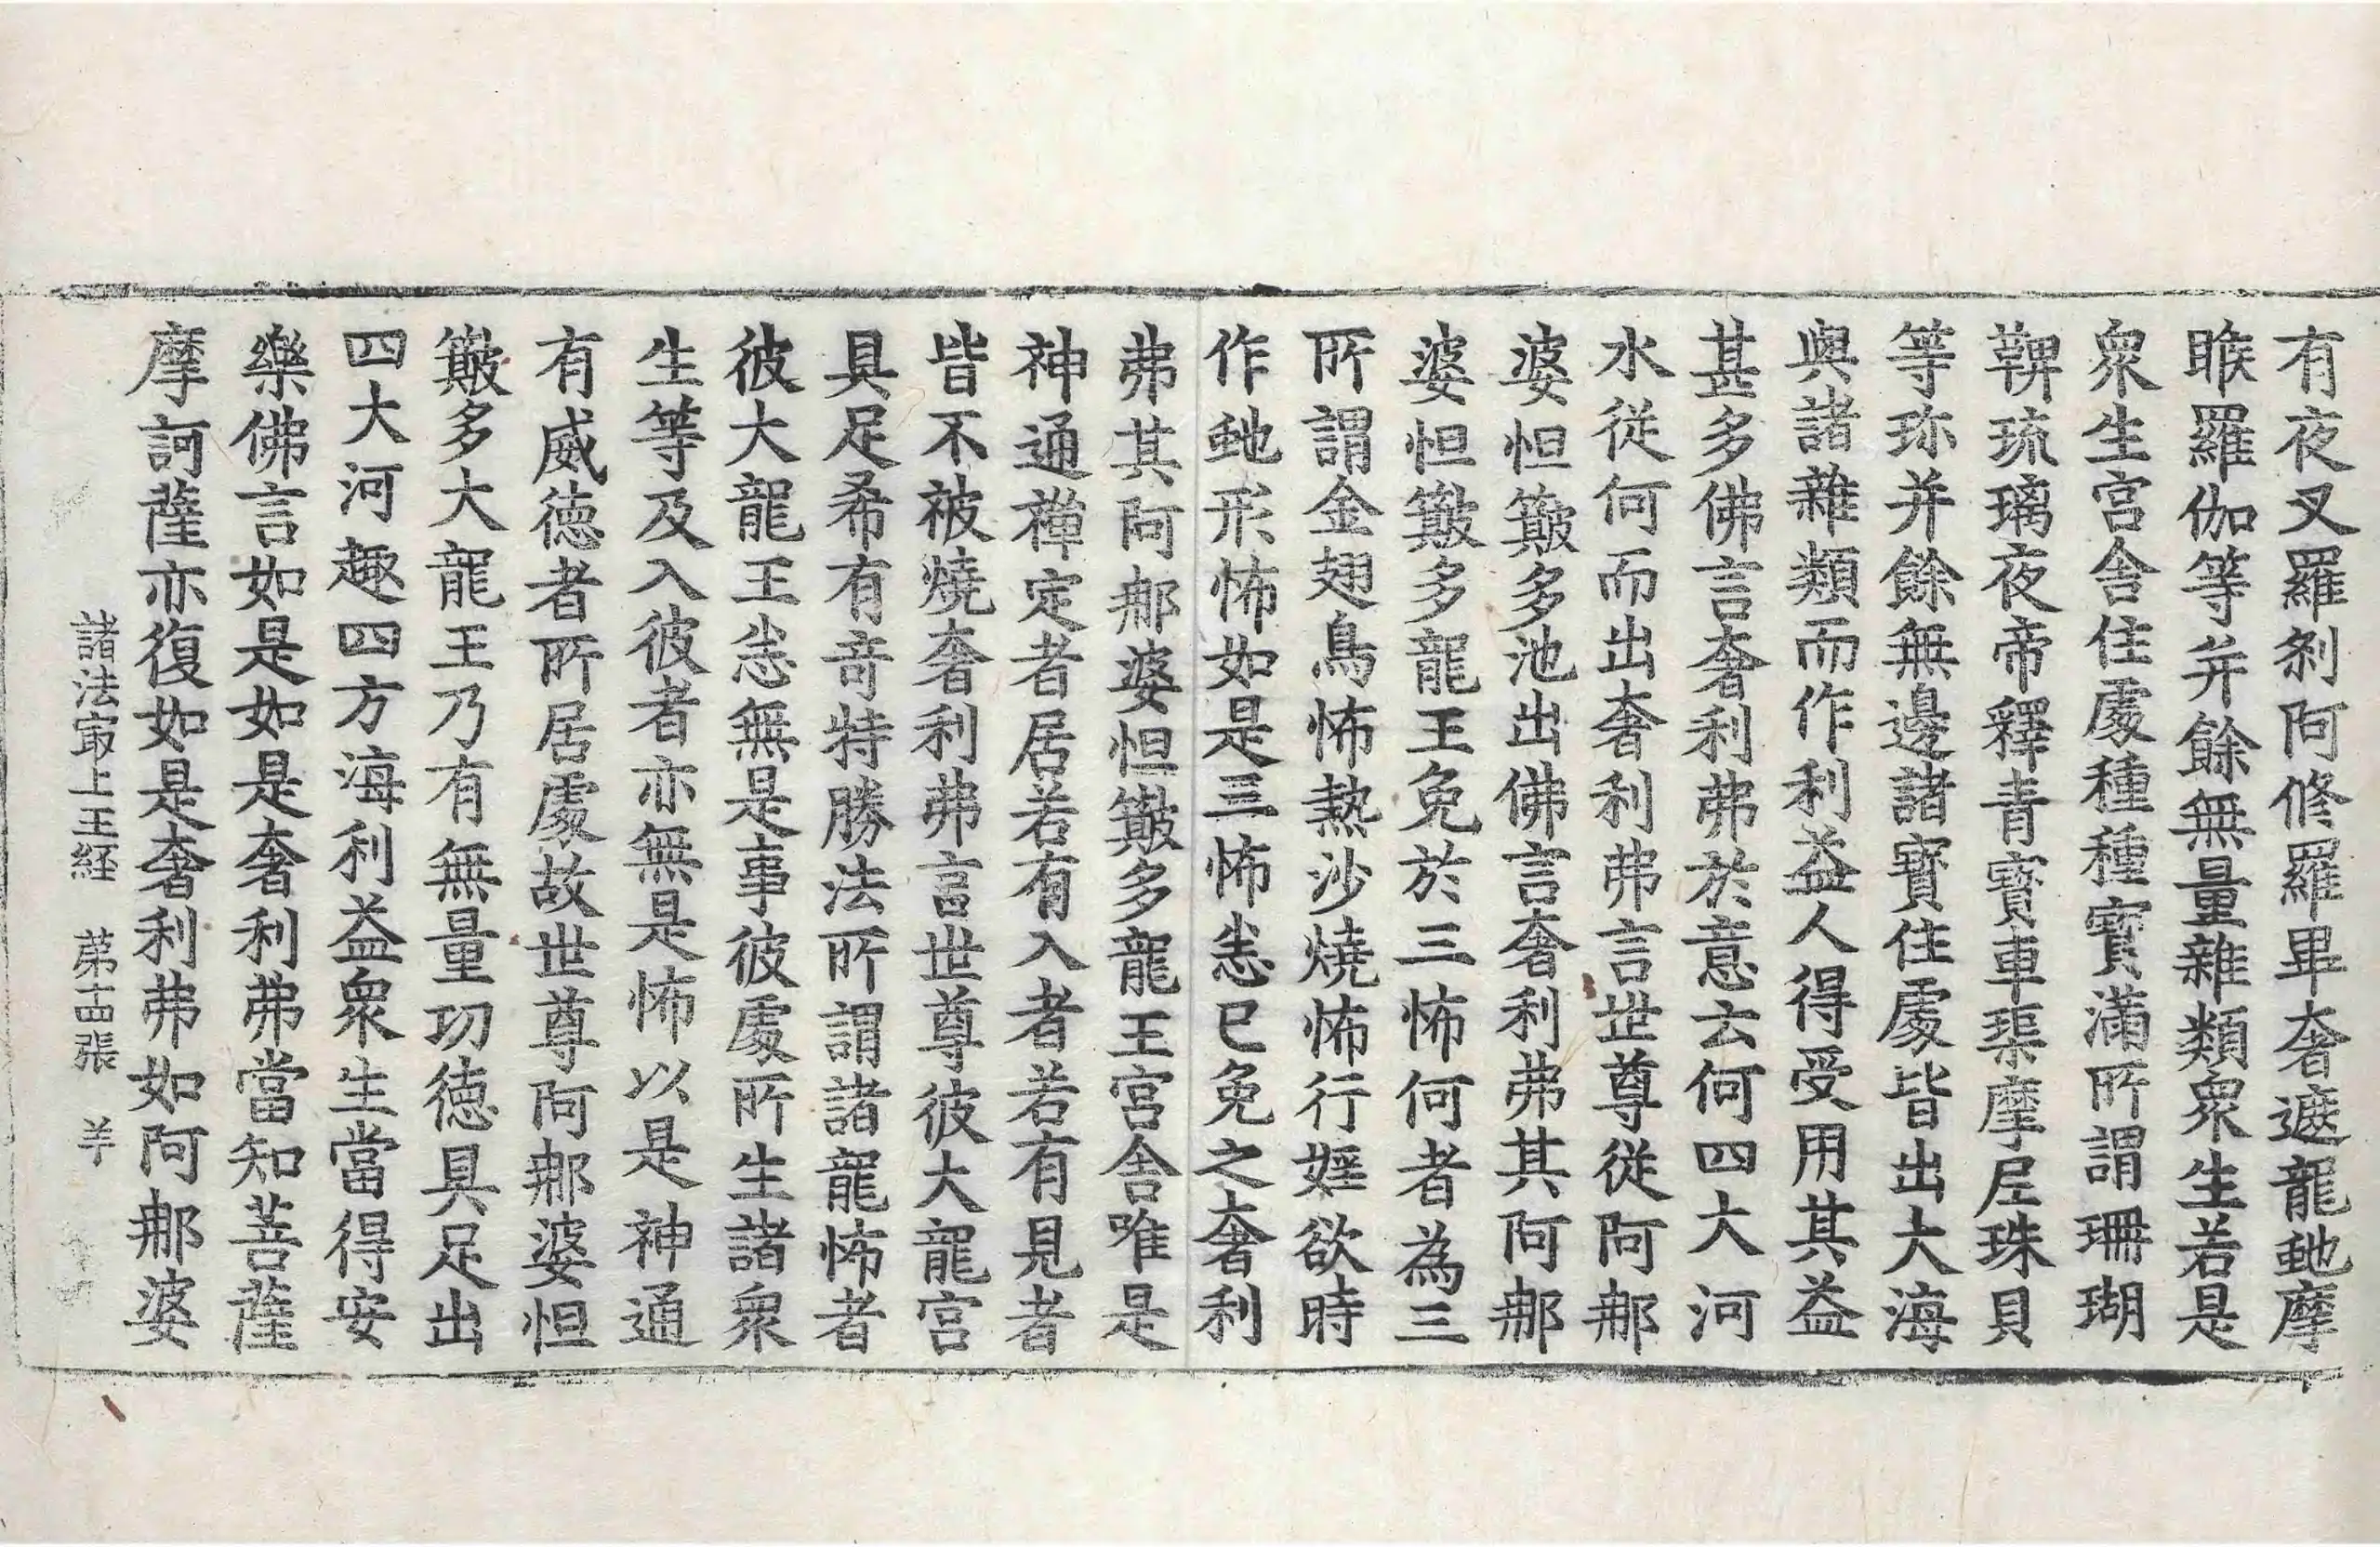 有夜叉羅刹阿修羅畢奢遮龍虵摩
睺羅伽等并餘無量雜類衆生若是
衆生宮舍住處種種寶滿所謂珊瑚
鞞琉璃夜帝釋青寶車渠摩尼珠貝
等珎并餘無邊諸寶住處皆出大海
與諸雜類而作利益人得受用其益
甚多佛言奢利弗於意云何四大河
水從何而出奢利弗言世尊從阿那
婆怛簸多池出佛言奢利弗其阿那
婆怛簸多龍王免於三怖何者為三
所謂金翅鳥怖熱沙燒怖行婬欲時
作虵形怖如是三怖恙已免之奢利
弗其阿那婆怛簸多龍王宮舍唯是
神通禪定者居若有入者若有見者
皆不被燒奢利弗言世尊彼大龍宮
具足希有竒特勝法所謂諸龍怖者
彼大龍王恙無是事彼處所生諸衆
生等及入彼者亦無是怖以是神通
有威德者所居處故世尊阿那婆怛
簸多大龍王乃有無量功德具足出
四大河趣四方海利益衆生當得安
樂佛言如是如是奢利弗當知菩薩
摩訶薩亦復如是奢利弗如阿那婆
諸法㝡上王経 苐十四張 羊